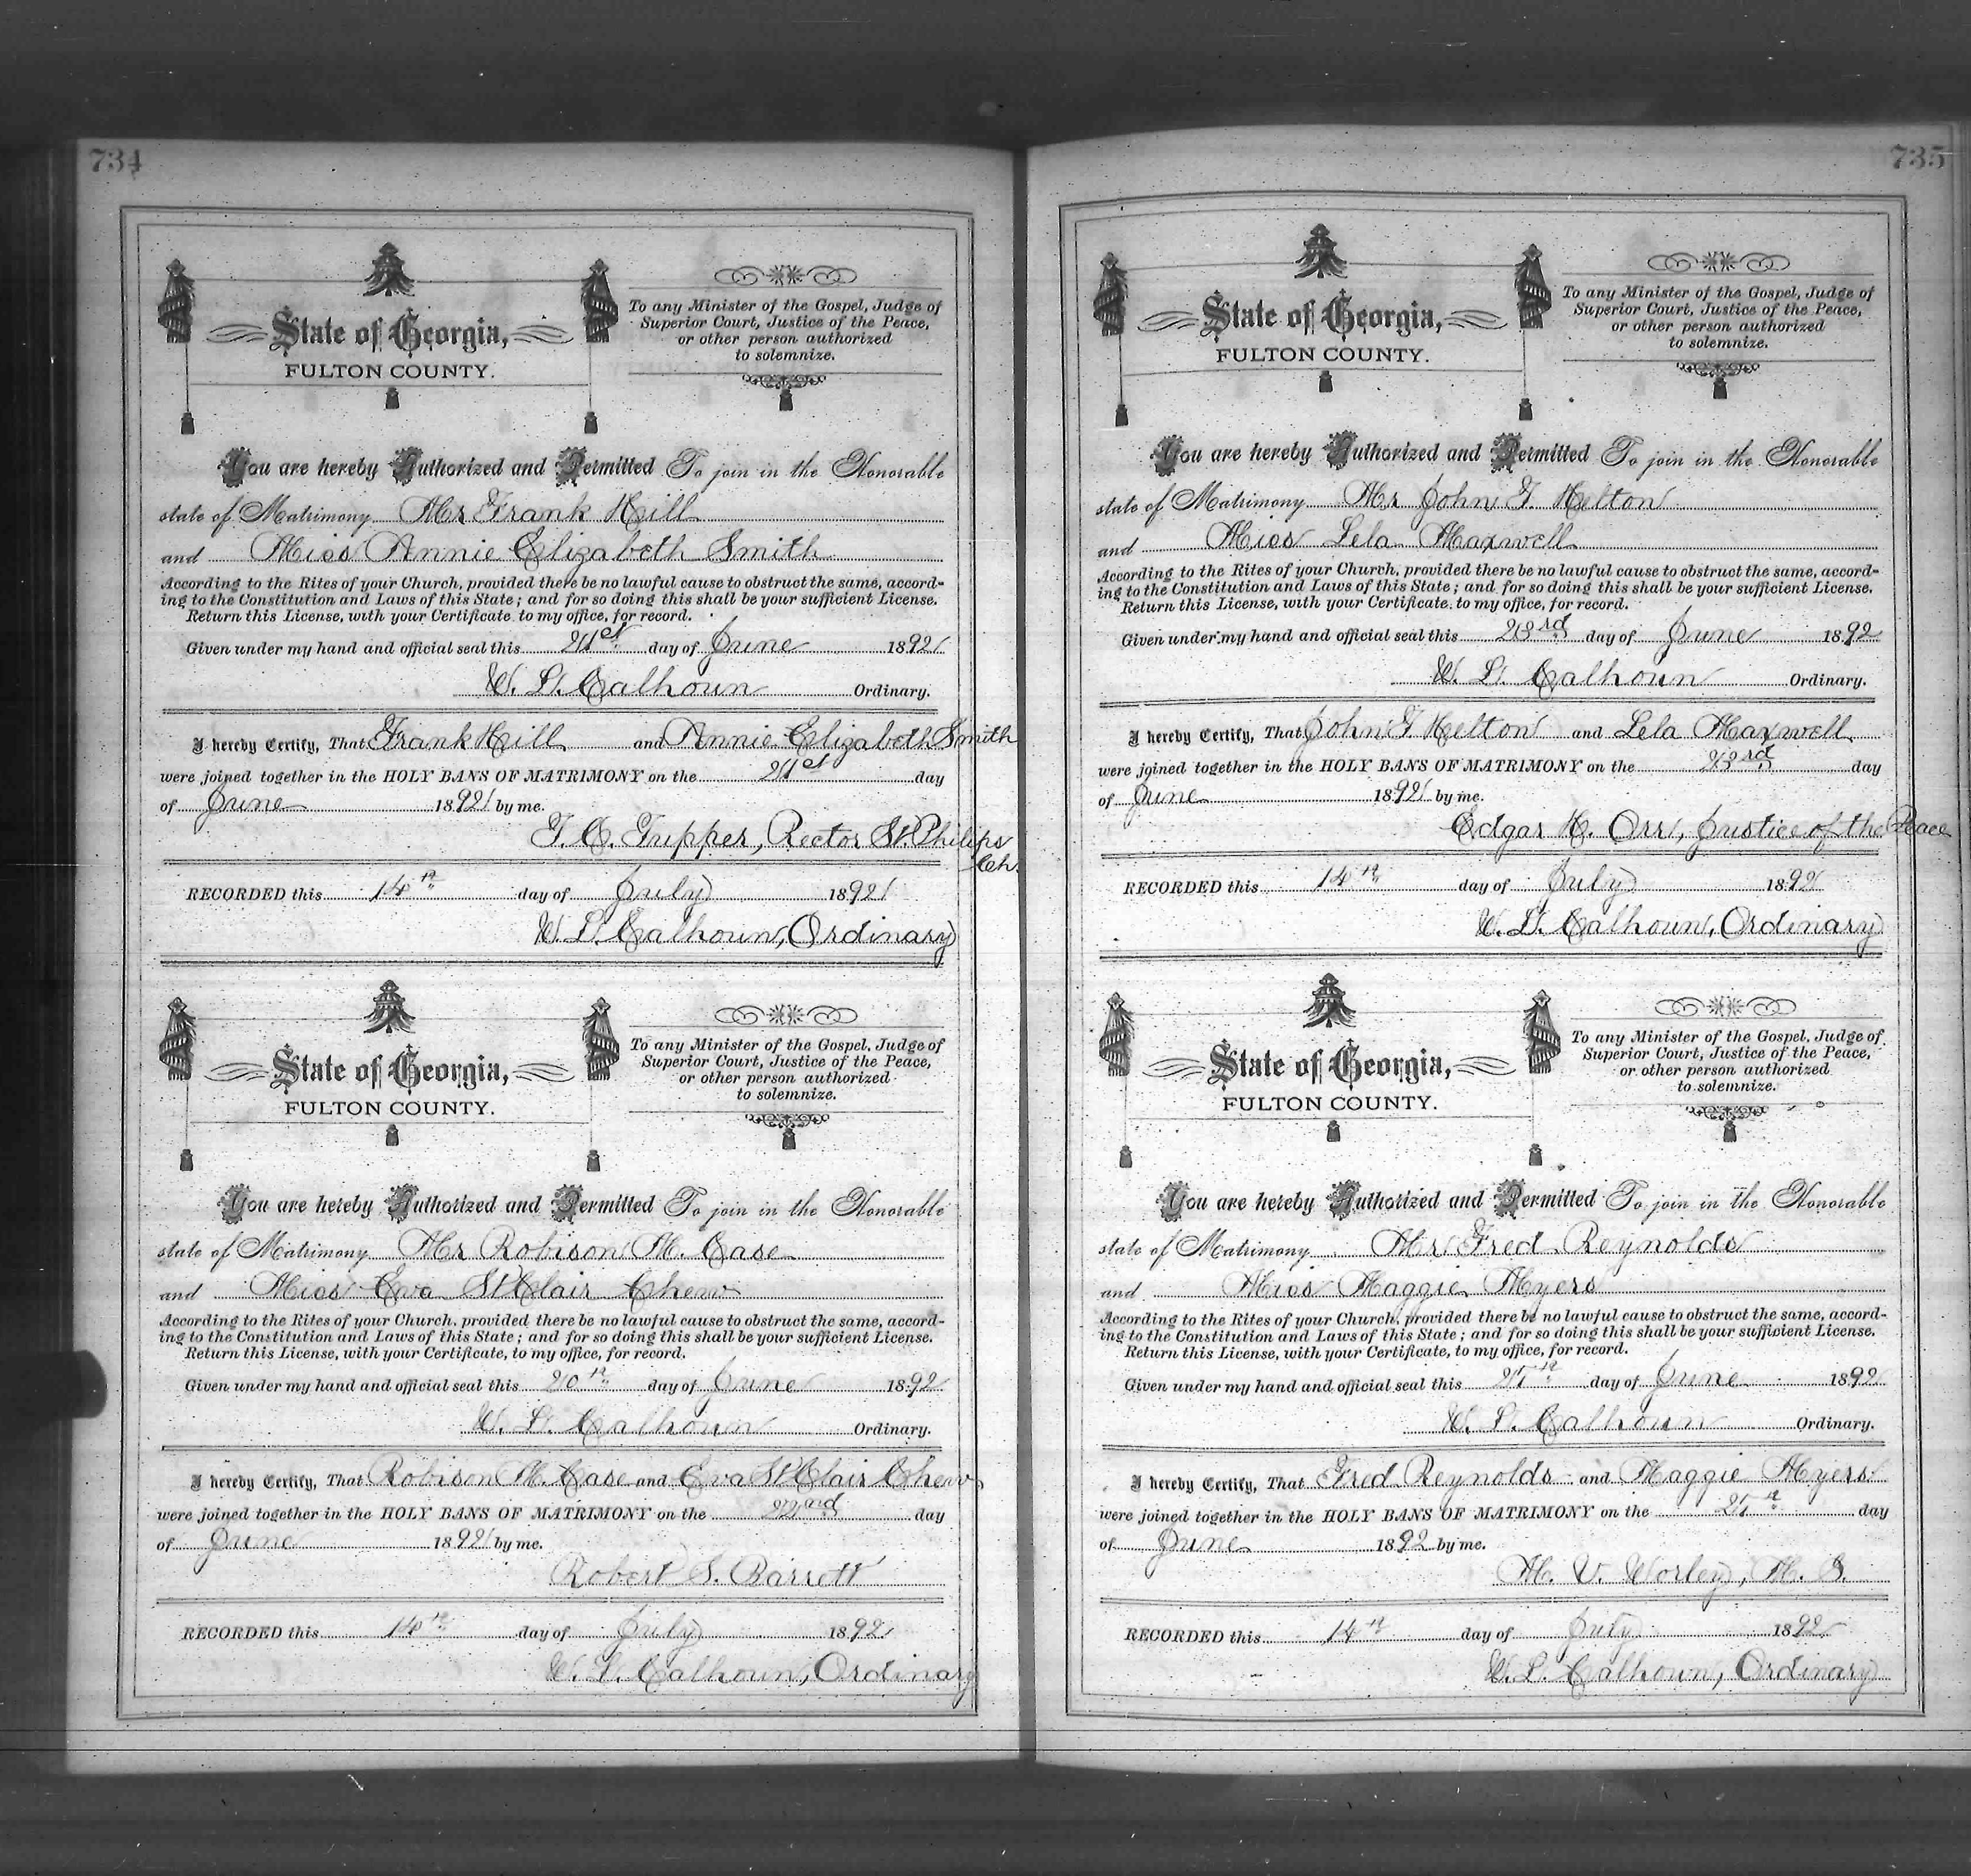 734
State of Georgia,
FULTON COUNTY.
To any Minister of the Gospel, Judge of
Superior Court, Justice of the Peace,
or other person authorized
to solemnize.
You are hereby Authorized and Permitted To join in the Honorable
state of Matrimony Mr Frank Hill
and Miss Annie Elizabeth Smith
According to the Rites of your Church, provided there be no lawful cause to obstruct the same, accord-
ing to the Constitution and Laws of this State; and for so doing this shall be your sufficient License.
Return this License, with your Certificate to my office, for record.
Given under my hand and official seal this 21st day of June 1892
W. L. Calhoun Ordinary.
I hereby Certify, That Frank Hill and Annie Elizabeth Smith
were joined together in the HOLY BANS OF MATRIMONY on the 21st day
of June 1892 by me.
T. C. Tupper, Rector St. Philips
Ch.
RECORDED this 14th day of July 1892
W. L. Calhoun, Ordinary
State of Georgia,
FULTON COUNTY.
To any Minister of the Gospel, Judge of
Superior Court, Justice of the Peace,
or other person authorized
to solemnize.
You are hereby Authorized and Permitted To join in the Honorable
state of Matrimony Mr Robison M. Case
and Miss Eva St Clair Chew
According to the Rites of your Church, provided there be no lawful cause to obstruct the same, accord-
ing to the Constitution and Laws of this State; and for so doing this shall be your sufficient License.
Return this License, with your Certificate, to my office, for record.
Given under my hand and official seal this 20th day of June 1892
W. L. Calhoun Ordinary.
I hereby Certify, That Robison M. Case and Eva St Clair Chew
were joined together in the HOLY BANS OF MATRIMONY on the 22nd day
of June 1892 by me.
Robert S. Barrett
RECORDED this 14th day of July 1892
W. L. Calhoun, Ordinary
735
State of Georgia,
FULTON COUNTY.
To any Minister of the Gospel, Judge of
Superior Court, Justice of the Peace,
or other person authorized
to solemnize.
You are hereby Authorized and Permitted To join in the Honorable
state of Matrimony Mr John T. Helton
and Miss Lela Maxwell
According to the Rites of your Church, provided there be no lawful cause to obstruct the same, accord-
ing to the Constitution and Laws of this State; and for so doing this shall be your sufficient License.
Return this License, with your Certificate, to my office, for record.
Given under my hand and official seal this 23rd day of June 1892
W. L. Calhoun Ordinary.
I hereby Certify, That John T Helton and Lela Maxwell
were joined together in the HOLY BANS OF MATRIMONY on the 23rd day
of June 1892 by me.
Edgar H. Orr, Justice of the Peace
RECORDED this 14th day of July 1892
W. L. Calhoun, Ordinary
State of Georgia,
FULTON COUNTY.
To any Minister of the Gospel, Judge of
Superior Court, Justice of the Peace,
or other person authorized
to solemnize.
You are hereby Authorized and Permitted To join in the Honorable
state of Matrimony Mr Fred Reynolds
and Miss Maggie Myers
According to the Rites of your Church, provided there be no lawful cause to obstruct the same, accord-
ing to the Constitution and Laws of this State; and for so doing this shall be your sufficient License.
Return this License, with your Certificate, to my office, for record.
Given under my hand and official seal this day of June 1892
W. L. Calhoun Ordinary.
I hereby Certify, That Fred Reynolds and Maggie Myers
were joined together in the HOLY BANS OF MATRIMONY on the day
of June 1892 by me.
M. V. Worley, M. G.
RECORDED this 14th day of July 1892
W. L. Calhoun, Ordinary